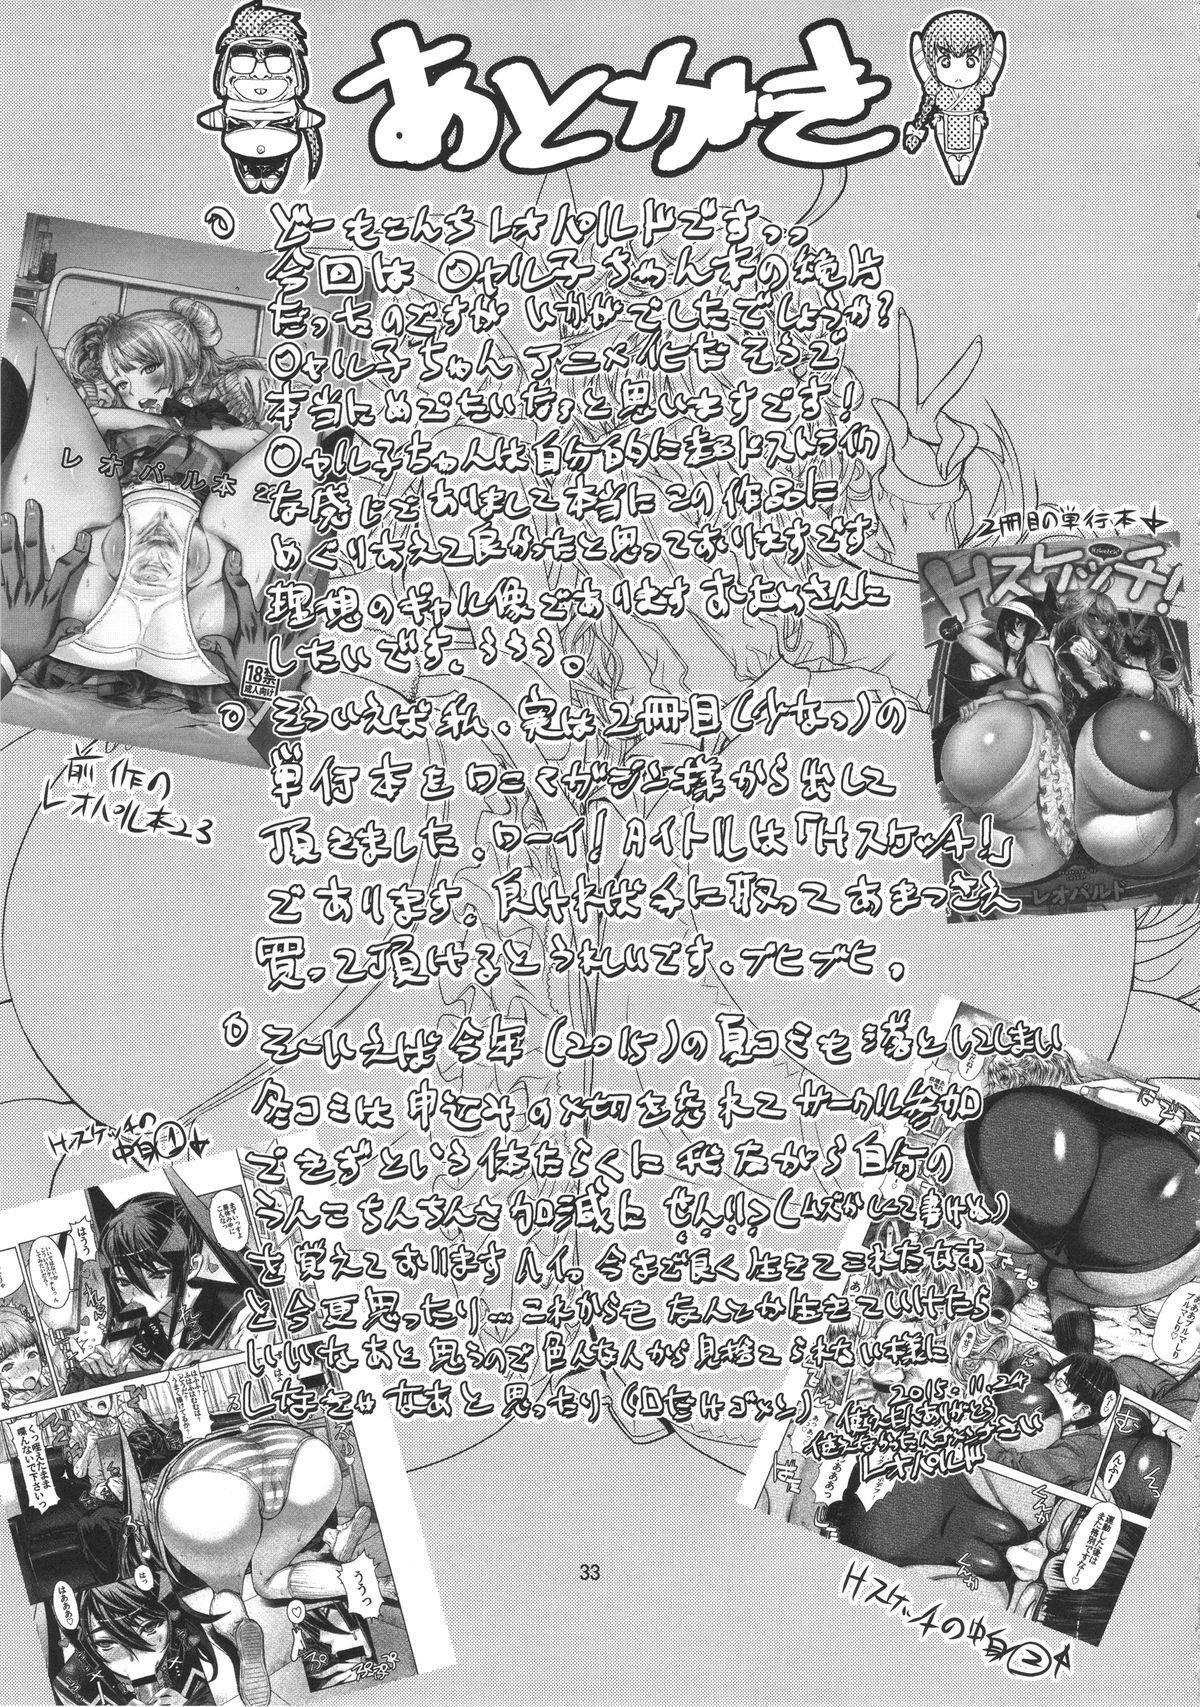 あとがき
どーもこんち レオパルドですっっ
今回は 〇ャル子ちゃん本の続片
だったのですが いかがでしたでしょうか?
〇ャル子ちゃん アニメ化だそうで
本当にめでたいなぁと思いますです!
〇ャル子ちゃんは自分的に超ドストライク
な感じでありまして本当にこの作品に
めぐりあえて良かったと思っておりますです
理想のギャル像であります
したいです。
そういえば私、実は2冊目(少なっ)の
単行本をワニマガジン様から出して
頂きました。ワーイ!タイトルは「Hスケッチ!」
であります。良ければ手に取ってあまつさえ
買って頂けるとうれしいです。ブヒブヒ。
そーいえば今年(2015)の夏コミも落としてしまい
冬コミは申込みの〆切を忘れてサークル参加
できずという体たらくに我ながら自分の
うんこちんちんさ加減に せんりつ(ムズかしくて書けぬ)
を覚えております ハイ。今まで良く生きてこれたなあ
と今更思ったり…これからもなんとか生きていけたら
いいなあと思うので色んな人から見捨てられない様に
しなきゃなあと思ったり(口だけゴメン)
2015.11.24
レオパルド
レオパール本
18禁
成人向け
前作の
レオパル本23
2冊目の単行本
Hスケッチ!
レオパルド
Hスケッチの
中身①
はうう
くっ咥えたまま
喋んないで下さいっ
はっ
はあああ♡
ううっ
Hスケッチの中身②
んふー
運動した後は
また格別ですな~♡
33